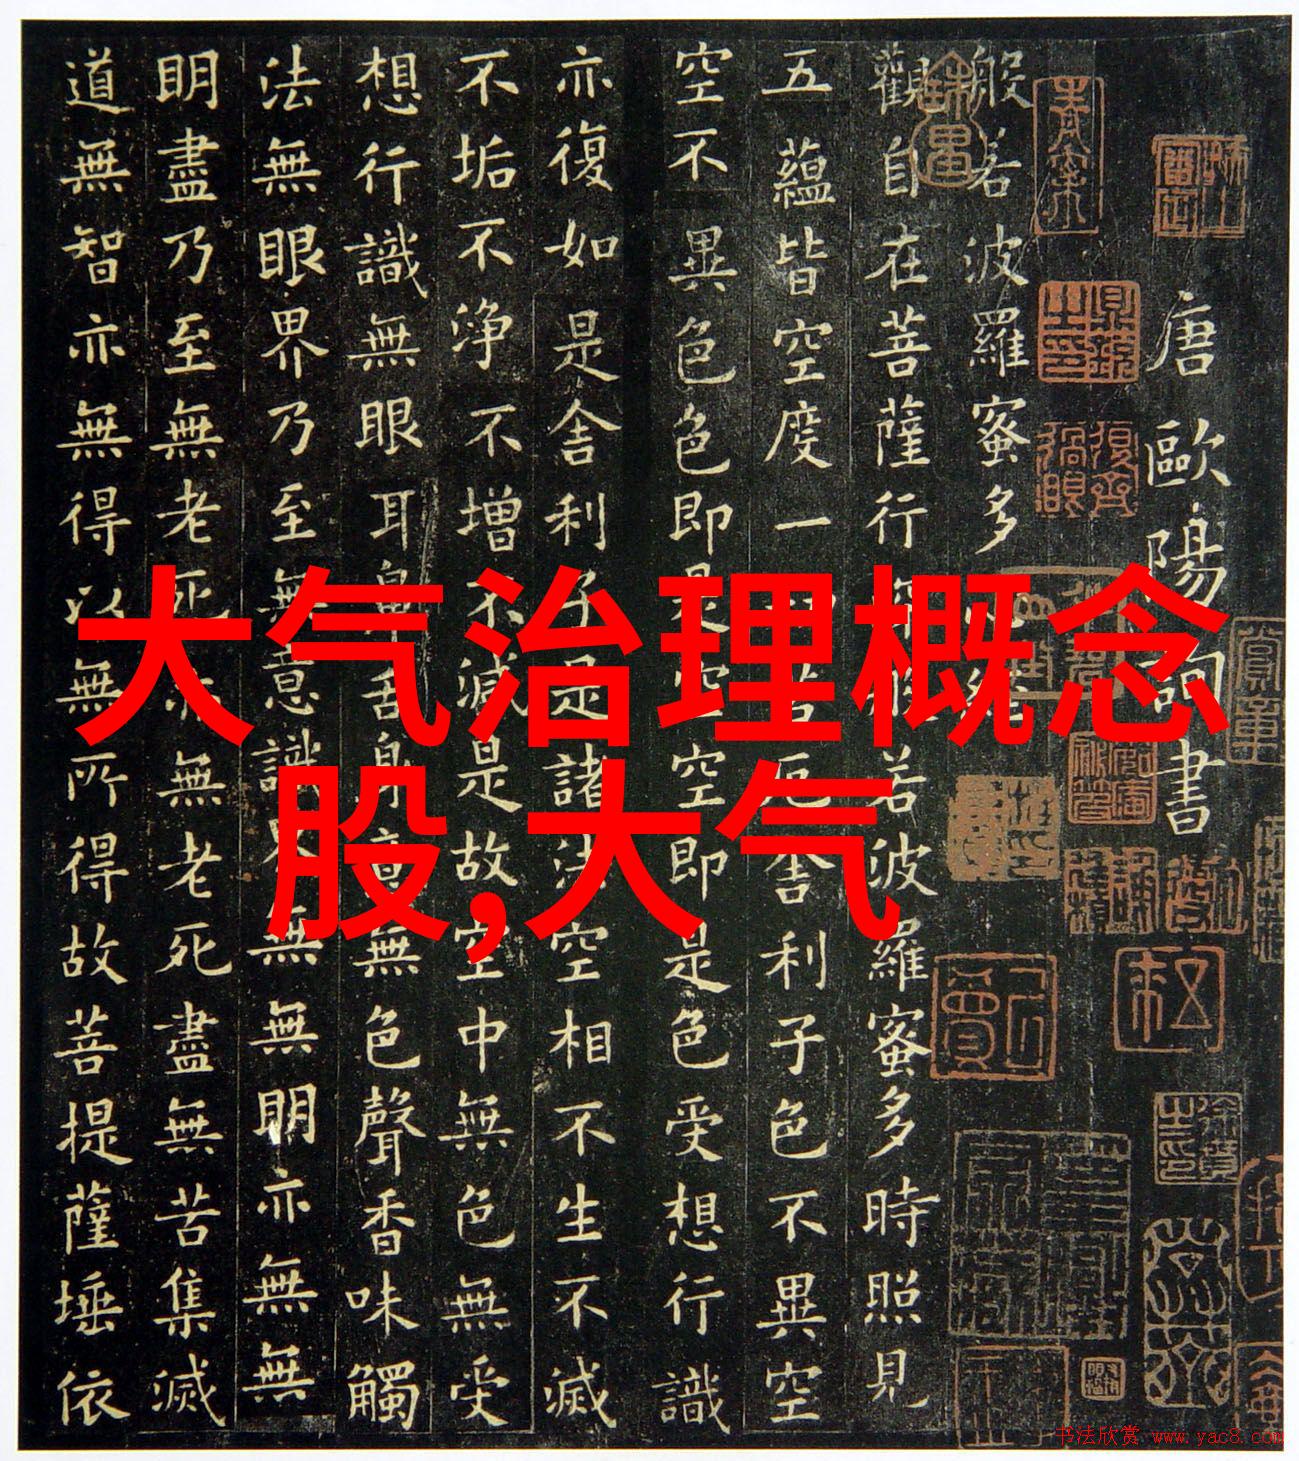 大气治理概念
股,大气
唐歐陽詢書
般若波羅蜜多心經
觀自在菩薩行深般若波羅蜜多時照見
五蘊皆空度一切苦厄舍利子色不異空
空不異色色即是空空即是色受想行識
亦復如是舍利子是諸法空相不生不滅
不垢不淨不增不減是故空中無色無受
想行識無眼耳鼻舌身意無色聲香味觸
法無眼界乃至無意識界無無明亦無無
明盡乃至無老死亦無老死盡無苦集滅
道無智亦無得以無所得故菩提薩埵依
书法欣赏 www.yac8.com